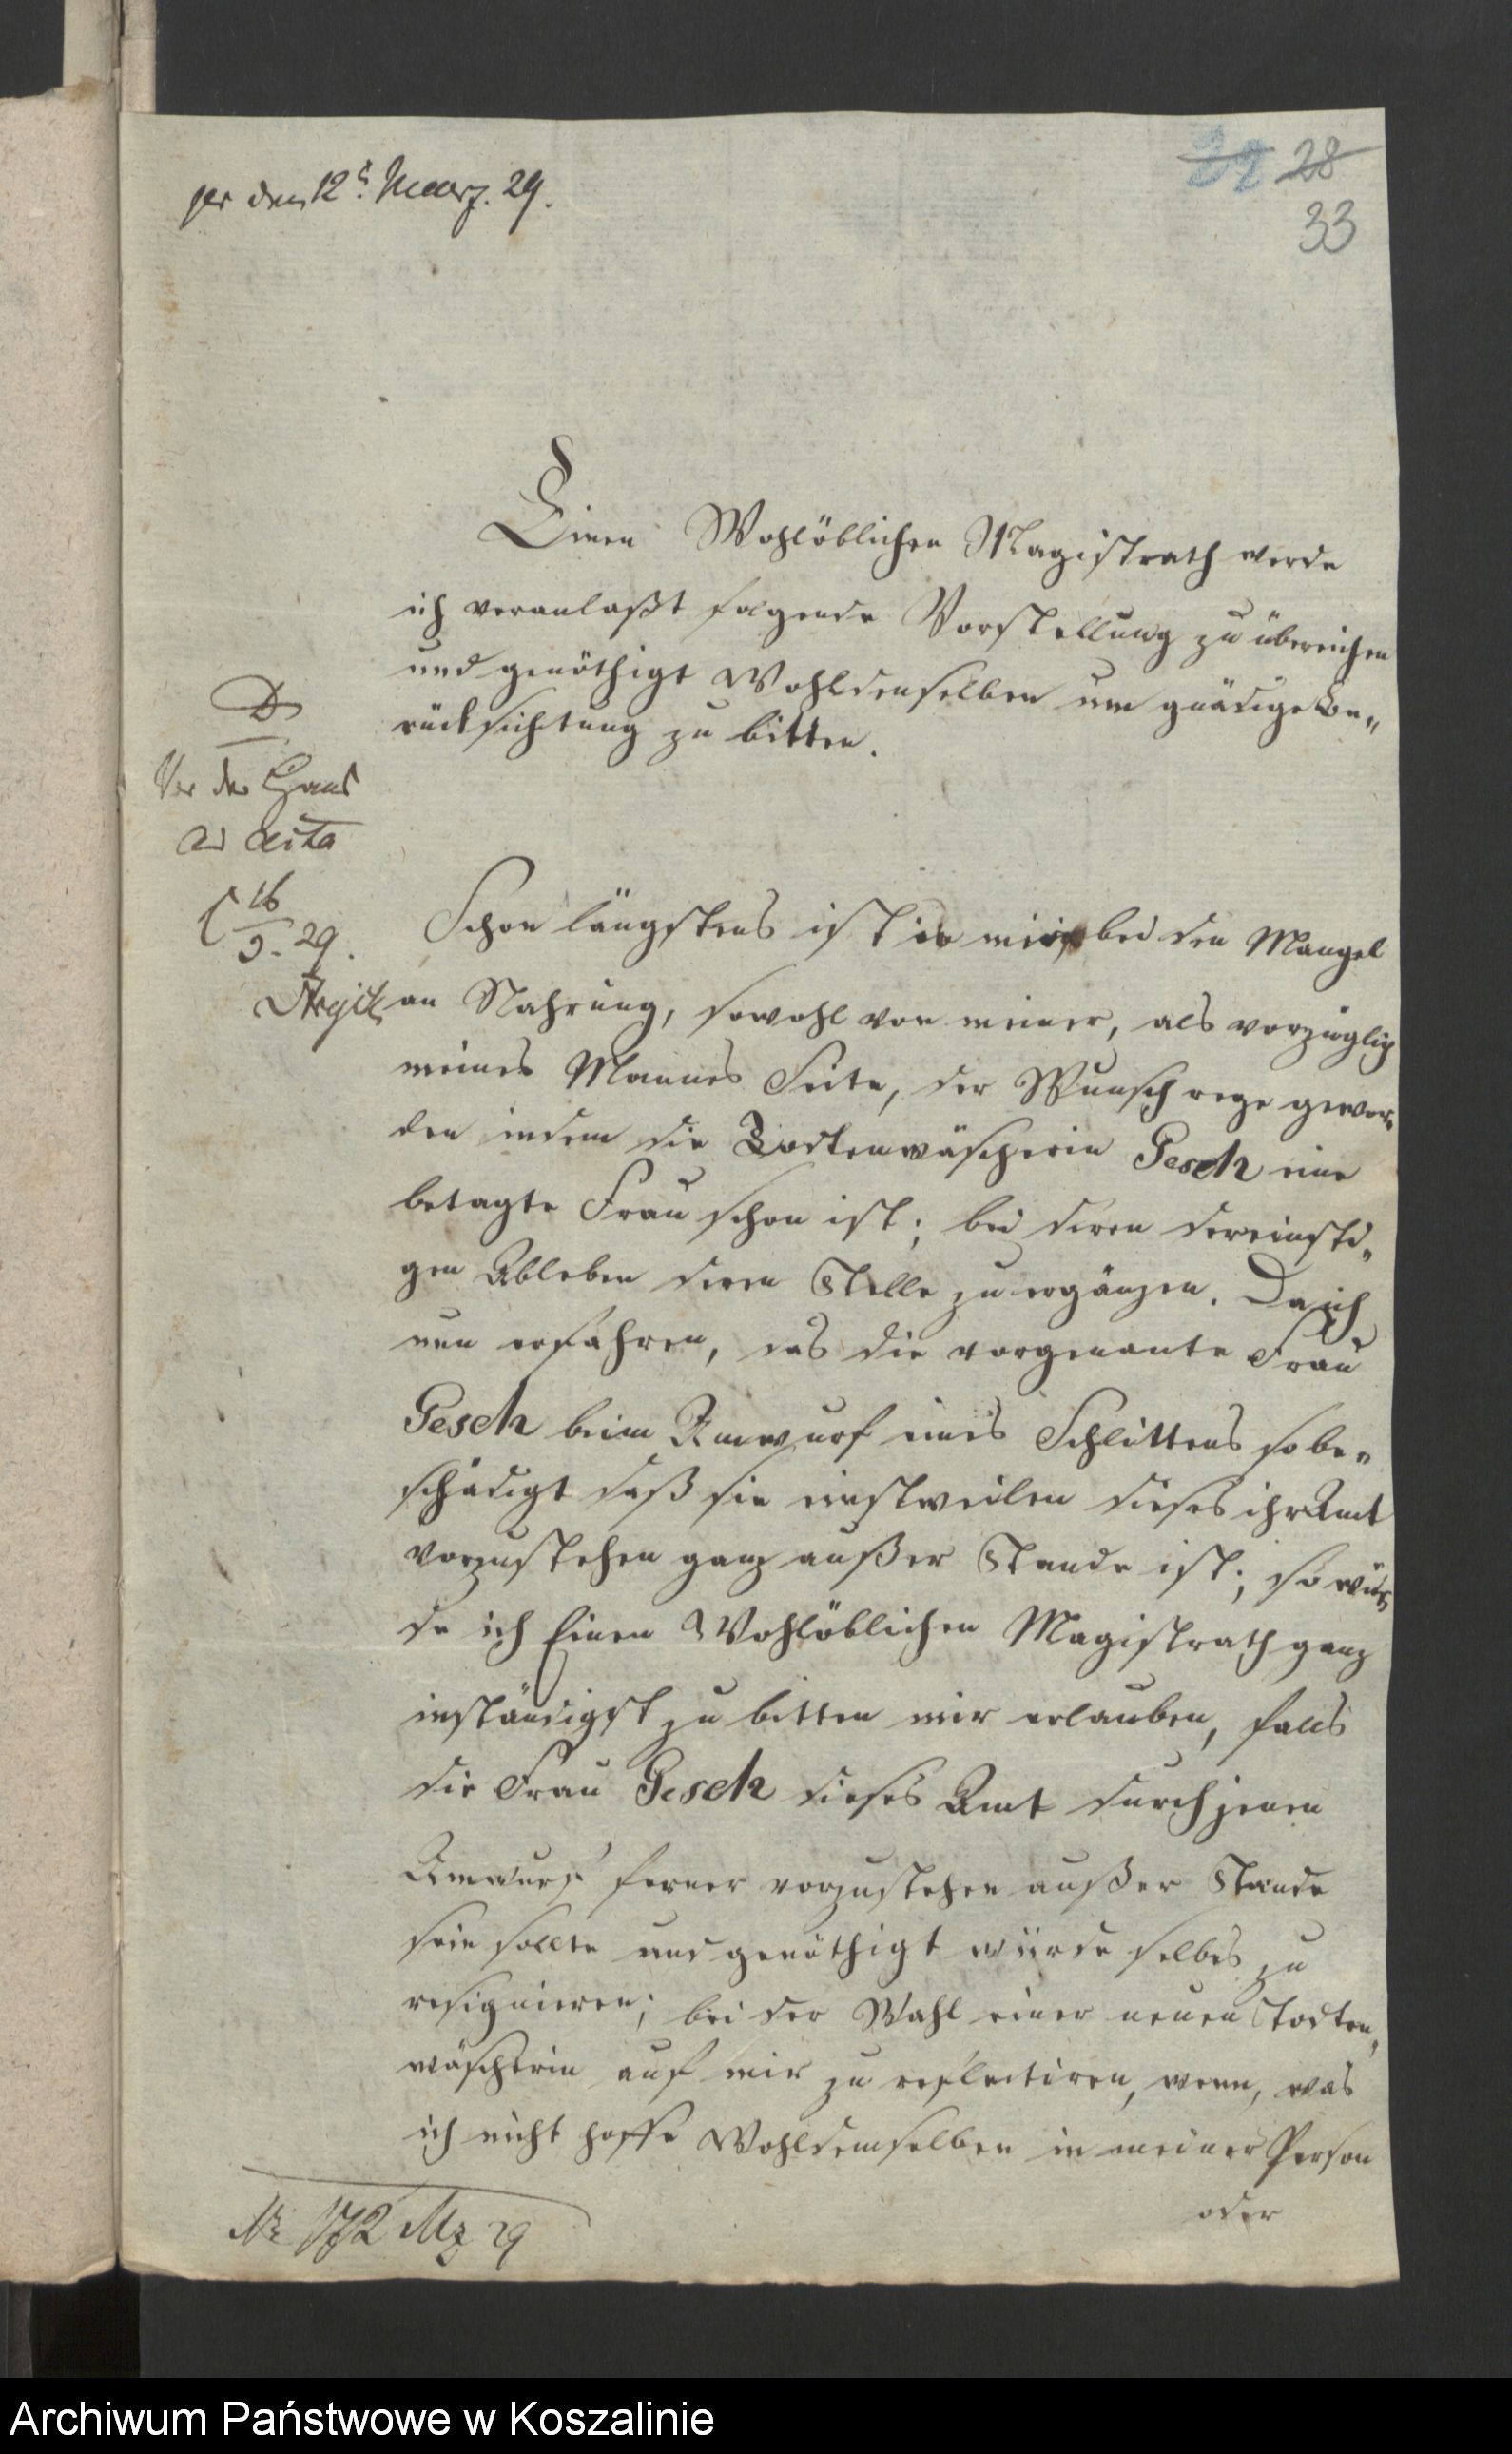 pr den 12t Maerz. 29.
29 28
33
Einen Wohlöblichen Magistrath werde
ich veranlaßt folgende Vorstellung zu übereichen
und genöthigt Wohldenselben um gnädige Be„
rücksichtung zu bitten.
D
ad acta
16
3. 29.
Schon längstens ist in mir bei den Mangel
an Nahrung, sowohl von meiner, als vorzüglich
meines Mannes Seite, der Wunsch rege gewor„
den indem die Todtenwäscherin Gesch eine
betagte Frau schon ist; bei deren dereinsti„
gen Ableben deren Stelle zu ergänzen. Da ich
nun erfahren, das die vorgenante Frau
Gesch beim Umwurf eines Schlittens so be„
schädigt daß sie einstweilen dieses ihr Amt
vorzustehen ganz außer Stande ist; so wür„
de ich Einen Wohlöblichen Magistrath ganz
inständigst zu bitten mir erlauben, falls
die Frau Gesch dieses Amt durch jenen
Umwurf ferner vorzustehen außer Stande
sein sollte und genöthigt würde selbes zu
resignieren; bei der Wahl einer neuen Todten„
wäscherin auf mir zu reflectiren, wenn, was
ich nicht hoffe Wohldemselben in meiner Person
oder
Nr 172 Mz 29
Archiwum Państwowe w Koszalinie